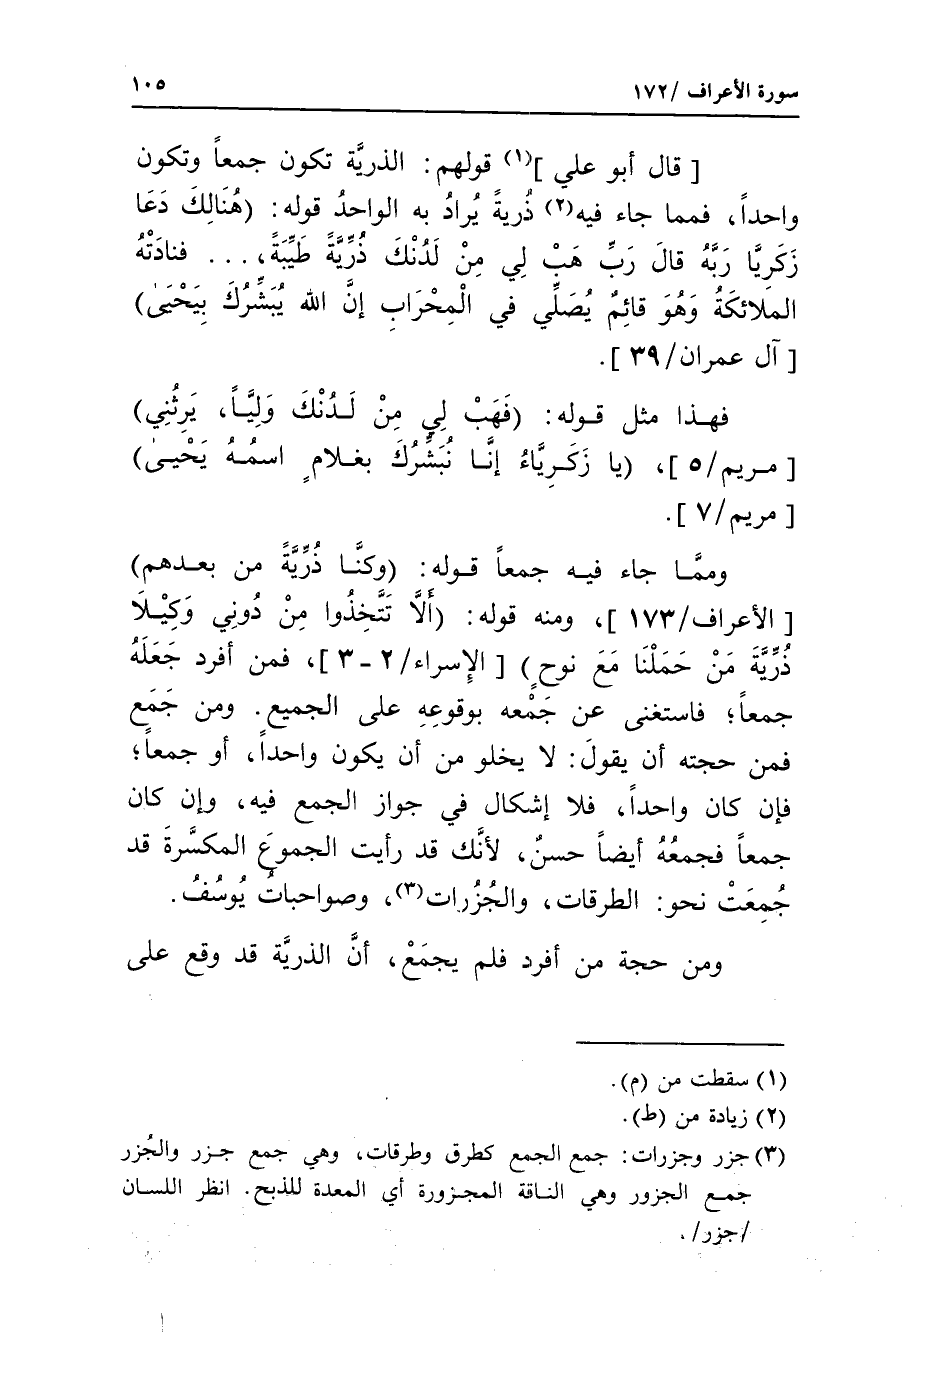 سورة الأعراف /١٧٢
١٠٥
[ قال أبو علي ](١) قولهم: الذريَّة تكون جمعاً وتكون
واحداً، فمما جاء فيه(٢) ذُريةً يُرادُ به الواحدُ قوله: (هُنَالِكَ دَعَا
زَكَرِيَّا رَبَّهُ قالَ رَبِّ هَبْ لِي مِنْ لَدُنْكَ ذُرِّيَّةً طَيِّبَةً، ... فنادَتْهُ
الملائكَةُ وَهُوَ قائِمٌ يُصَلِّي في الْمِحْرَابِ إنَّ الله يُبَشِّرُكَ بِيَحْيَىٰ)
[ آل عمران/ ٣٩ ].
فهـذا مثل قـوله: (فَهَبْ لِي مِنْ لَـدُنْكَ وَلِيَّـاً، يَرِثُنِي)
[ مـريم/ ٥ ]، (يا زَكَـرِيَّاءُ إنَّـا نُبَشِّرُكَ بغـلامٍ اسمُـهُ يَحْيـىٰ)
[ مريم/ ٧ ].
وممَّـا جاء فيـه جمعاً قـوله: (وكنَّـا ذُرِّيَّةً من بعـدهم)
[ الأعراف/ ١٧٣ ]، ومنه قوله: (أَلَّا تَتَّخِذُوا مِنْ دُونِي وَكِيْلَا
ذُرِّيَّةَ مَنْ حَمَلْنَا مَعَ نوحٍ) [ الإسراء/ ٢ - ٣ ]، فمن أفرد جَعَلَهُ
جمعاً؛ فاستغنى عن جَمْعه بوقوعِهِ على الجميع. ومن جَمَع
فمن حجته أن يقولَ: لا يخلو من أن يكون واحداً، أو جمعاً؛
فإن كان واحداً، فلا إشكال في جواز الجمع فيه، وإن كان
جمعاً فجمعُهُ أيضاً حسنٌ، لأنَّك قد رأيت الجموعَ المكسَّرةَ قد
جُمِعَتْ نحو: الطرقات، والجُزُرات(٣)، وصواحباتُ يُوسُفُ.
ومن حجة من أفرد فلم يجمَعْ، أنَّ الذريَّة قد وقع على
(١) سقطت من (م).
(٢) زيادة من (ط).
(٣) جزر وجزرات: جمع الجمع كطرق وطرقات، وهي جمع جـزر والجُزر
جمـع الجزور وهي النـاقة المجـزورة أي المعدة للذبح. انظر اللسـان
/جزر/.